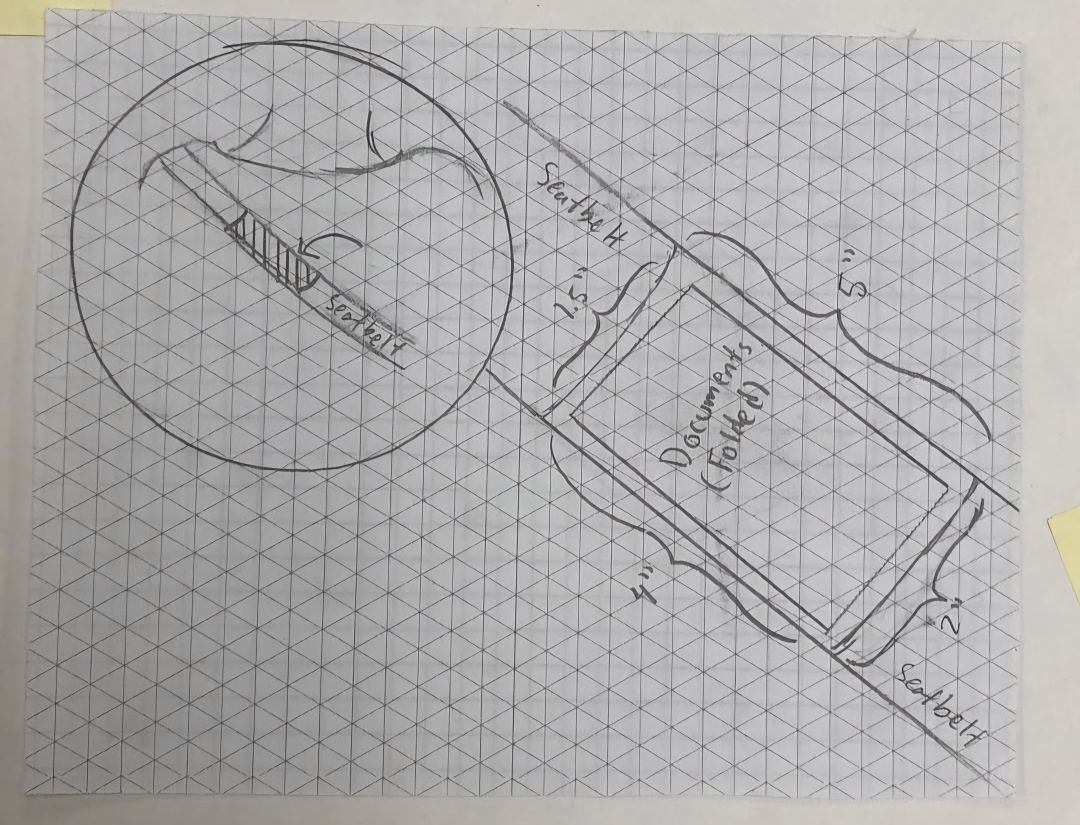 Seatbelt
Seatbelt
1.5"
5"
Documents
(Folded)
4"
2"
Seatbelt